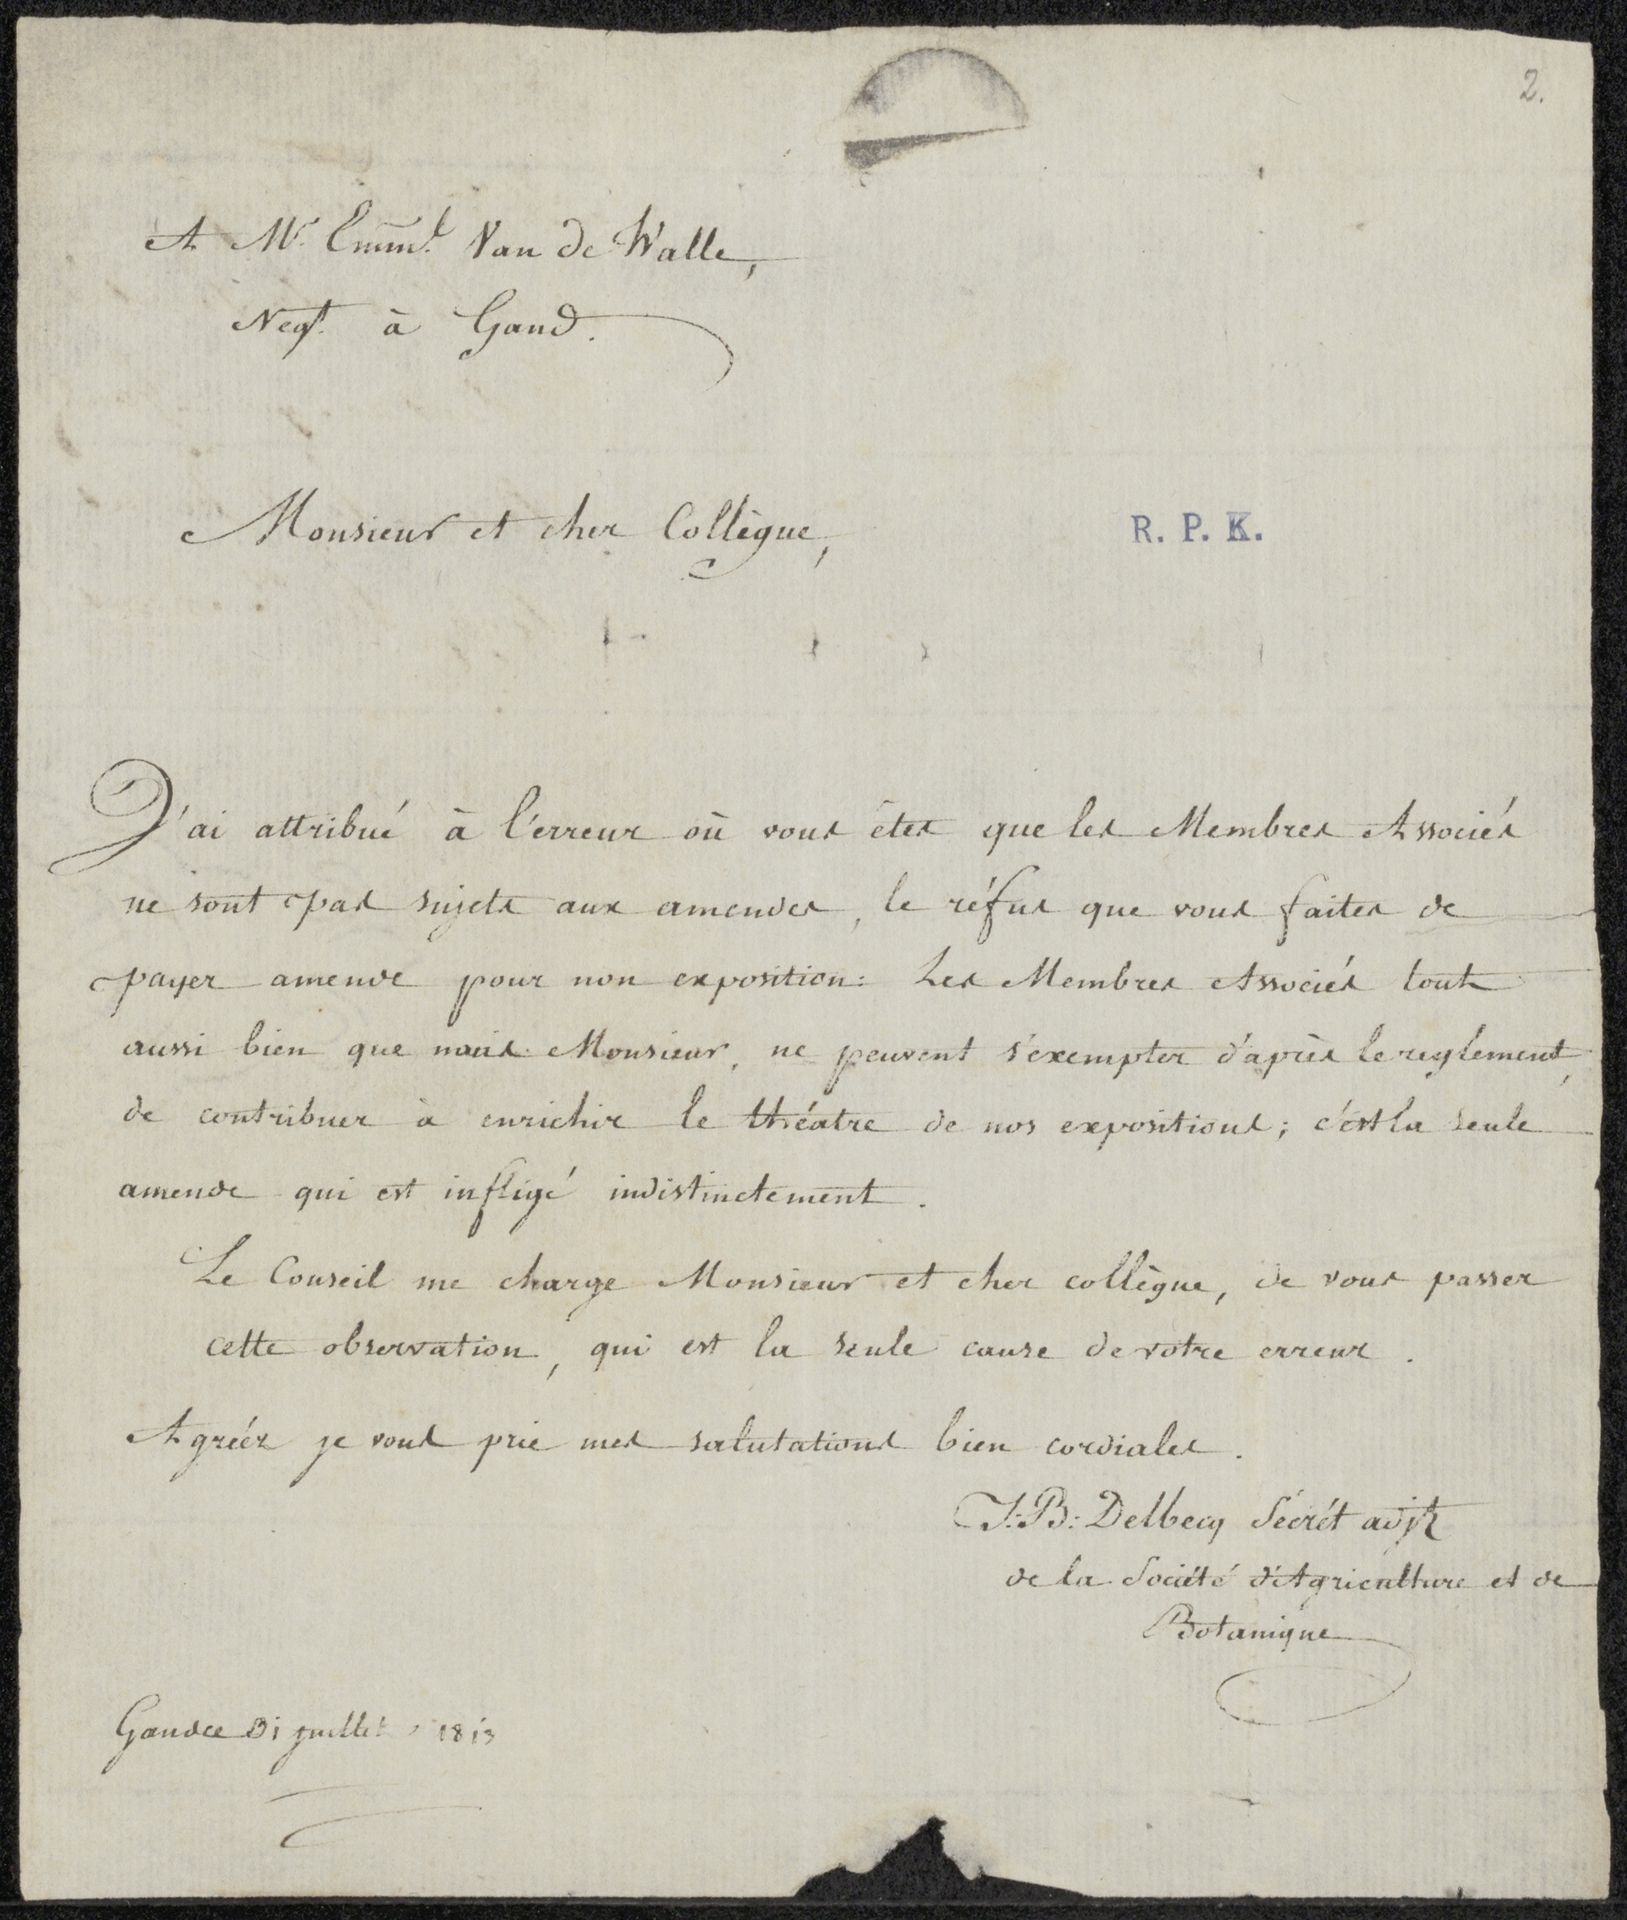 2.
A Mr. Emml. Van de Walle,
Negt. à Gand.
Monsieur et cher Collègue,
R. P. K.
J'ai attribué à l'erreur où vous étes que les Membres Associés
ne sont pas sujets aux amendes, le réfus que vous faites de
payer amende pour non exposition: Les Membres Associés tout
aussi bien que nous Monsieur, ne peuvent s'exempter d'après le reglément,
de contribuer à enrichir le théatre de nos expositions; c'est la seule
amende qui est infligé indistinctement.
Le Conseil me charge Monsieur et cher collègue, de vous passer
cette observation, qui est la seule cause de votre erreur.
Agréez je vous prie mes salutations bien cordiales.
J: B: Delbecq Sécrét adjt
de la Société d'Agriculture et de
Botanique
Gand ce 31 juillet 1813